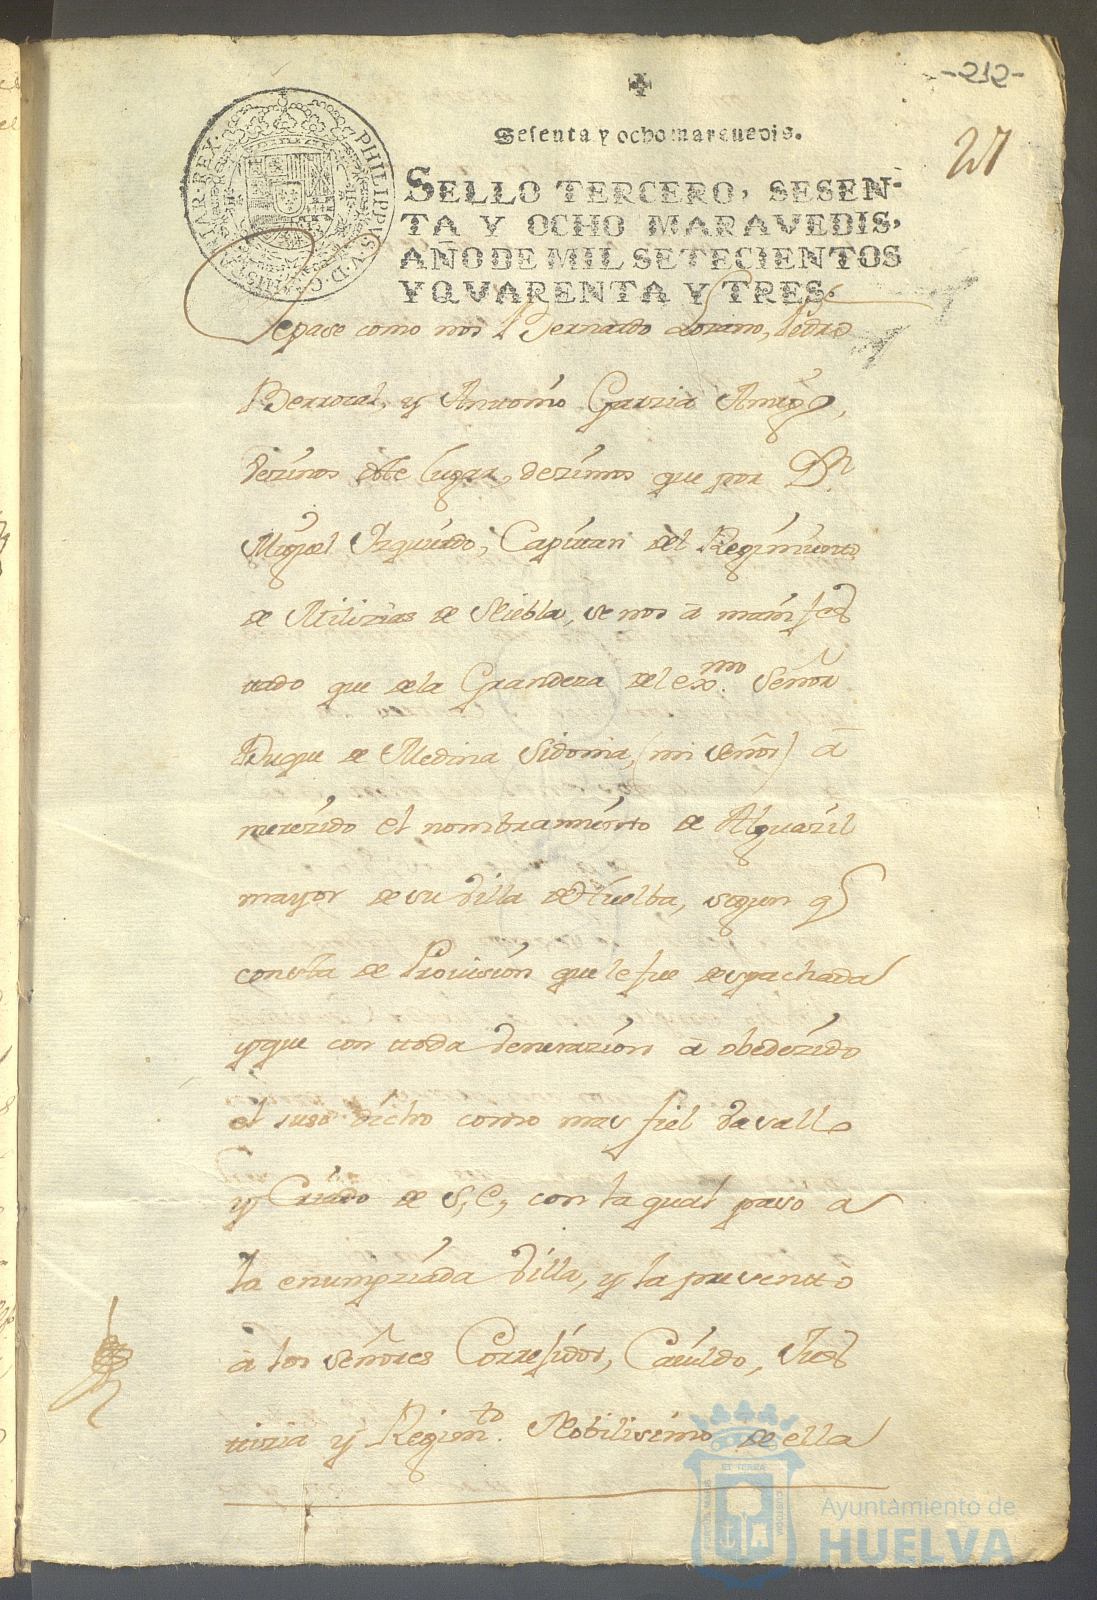 -212-
27
Sesenta y ocho maravedis.
PHILIPPUS V D G HISPANIAR REX
SELLO TERCERO, SESEN-
TA Y OCHO MARAVEDIS,
AÑO DE MIL SETECIENTOS
Y QVARENTA Y TRES.
Sepase como nos Bernardo Lorino, Pedro
Berrocal, y Antonio Garzia
Vezinos deste Lugar, dezimos que por Dn
Miguel Yzquierdo, Capitan del Regimiento
de Milizias de Niebla, se nos a manifes
tado que de la Grandeza del exmo. Señor
Duque de Medina Sidonia, (mi señor) a
merezido el nombramiento de Alguazil
mayor de su Villa de Huelba, segun q
consta de Provision que le fue despachada
y que con ttoda Venerazion a obedezido
el suso dicho como mas fiel Vasallo
y Criado de S, E, con la qual paso a
la enumpziada Villa, y la presentto
a los señores Corregidor, Cavildo, Jus
ttizia y Regimto. Nobilisimo de ella
ET TERRA
CUSTODIA
Ayuntamiento de
HUELVA